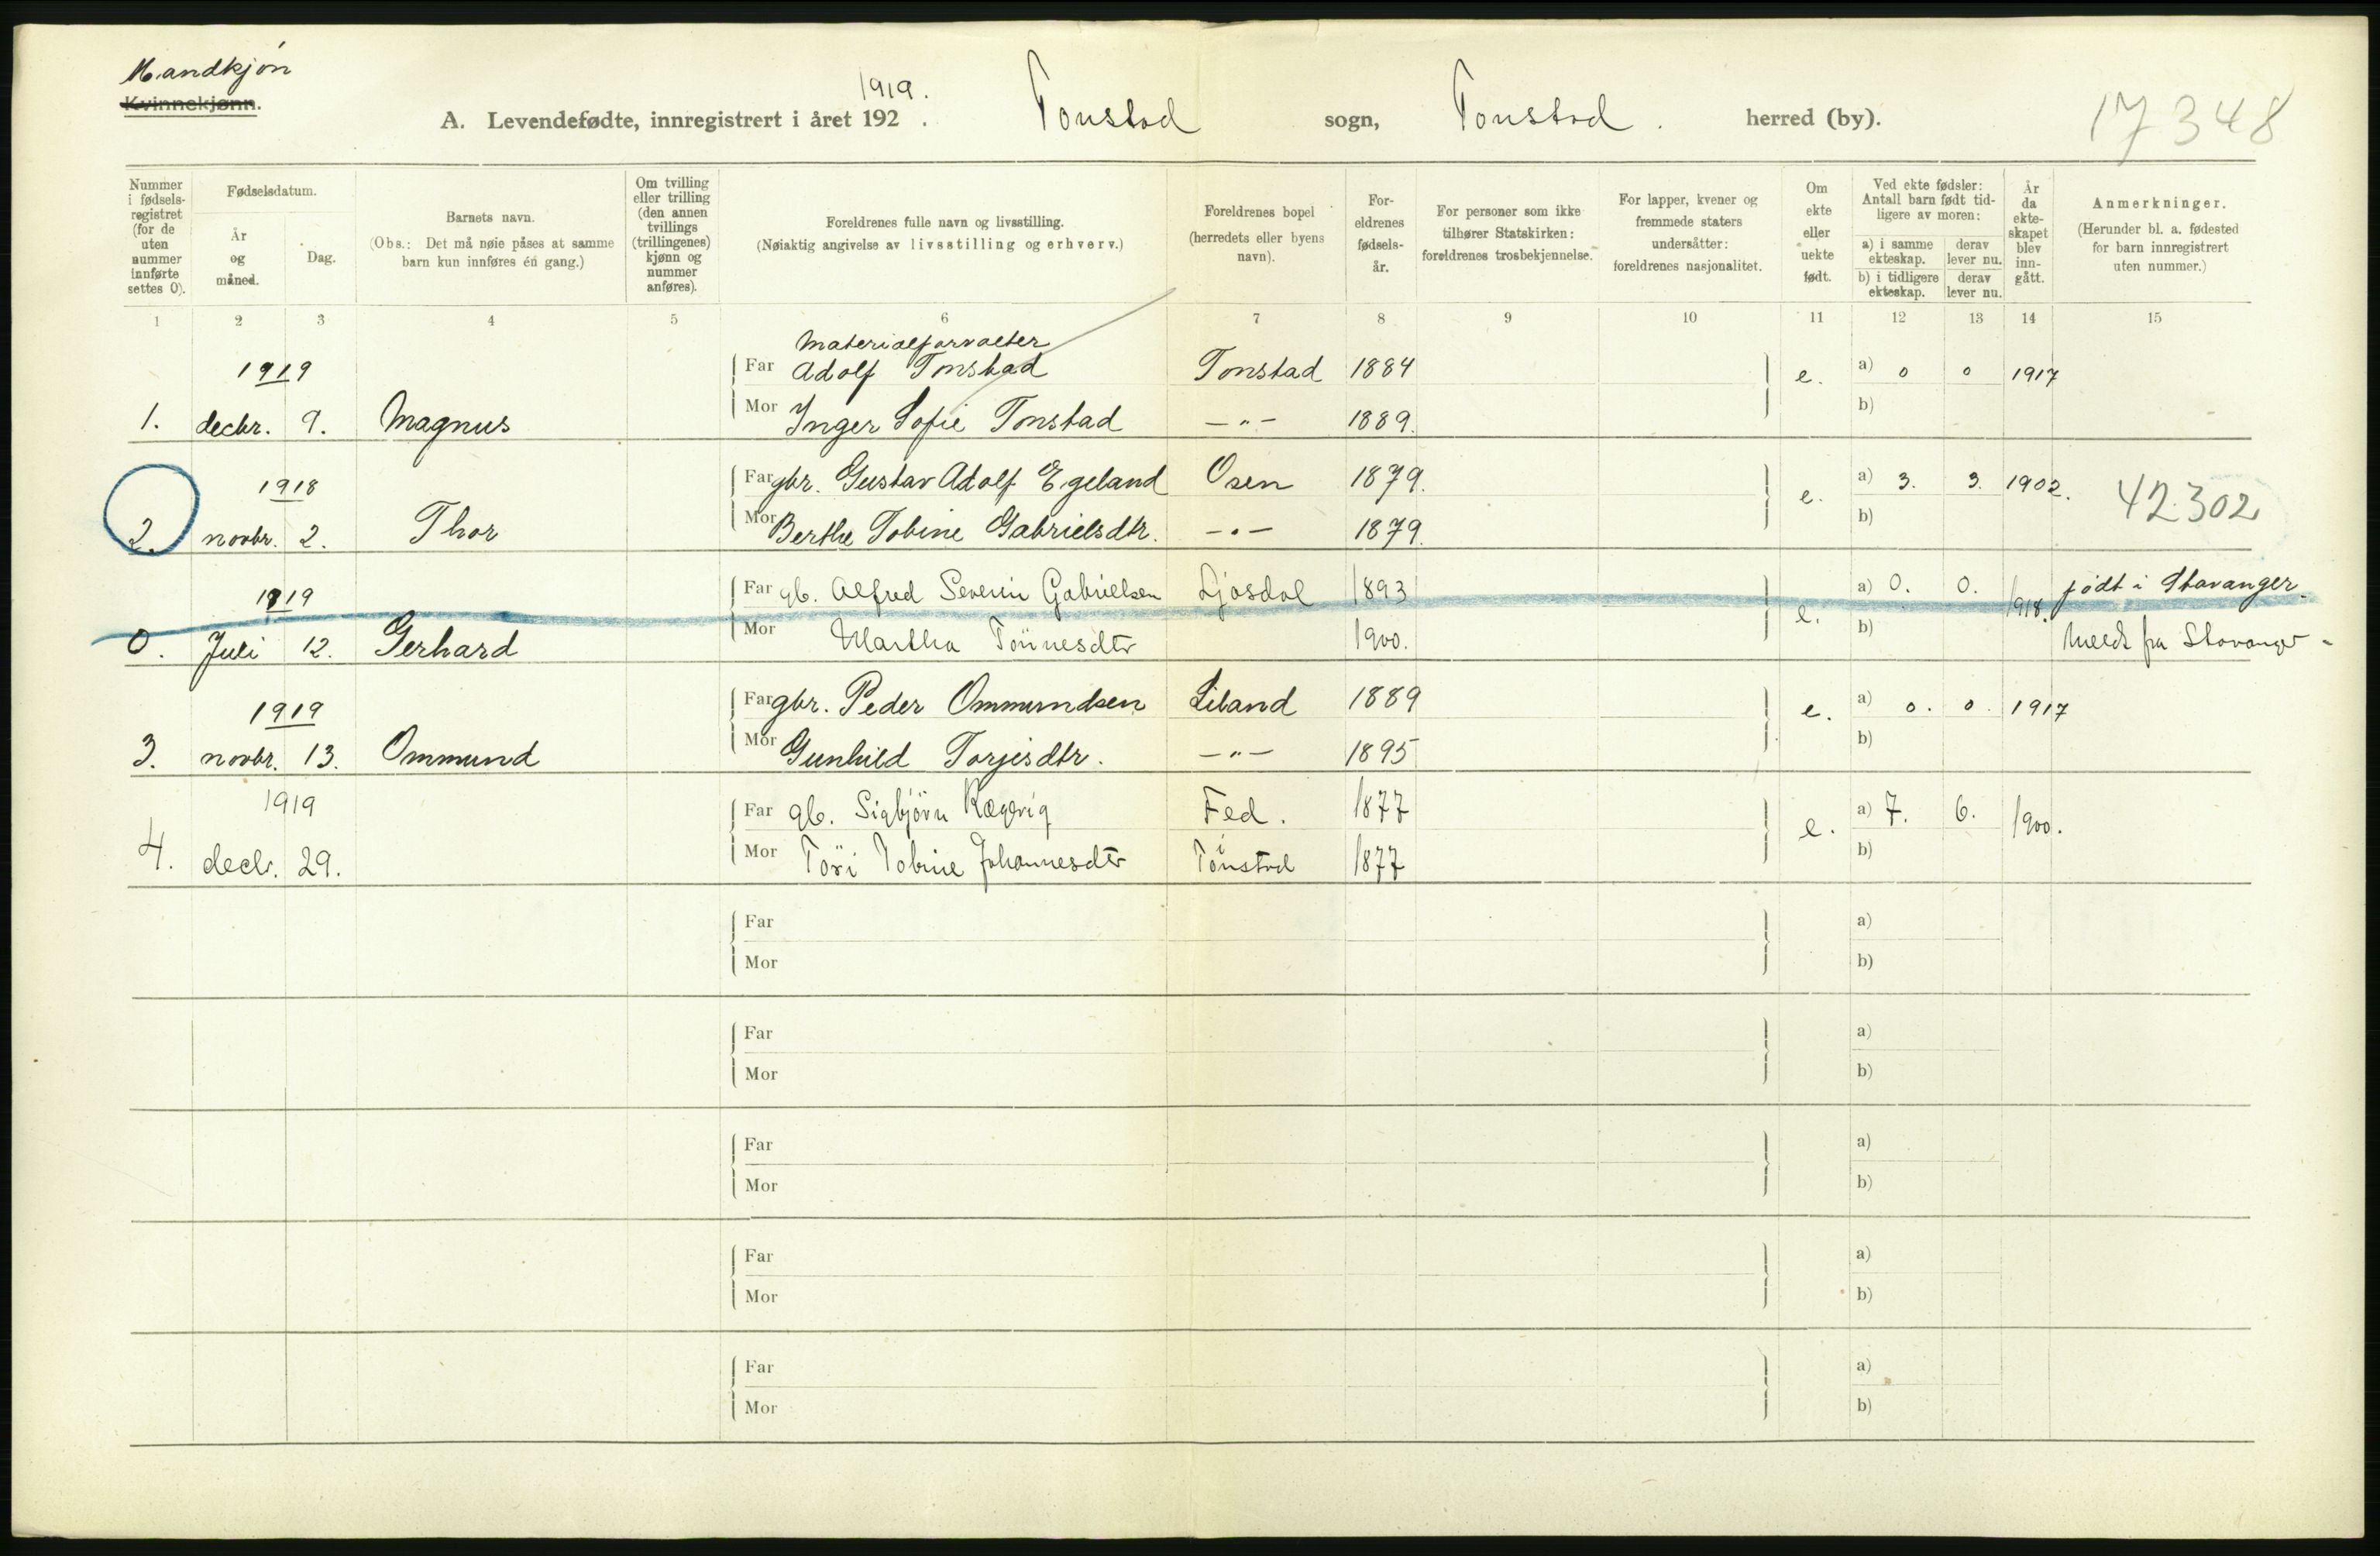 Mandkjøn
Kvinnekjønn.
A. Levendefødte, innregistrert i året 192 1919. . Tonstad sogn, Tonstad . herred (by). 17348
Nummer i fødselsregistret (for de uten nummer innførte settes 0).
Fødselsdatum.
År og måned.
Dag.
Barnets navn.
(Obs.: Det må nøie påses at samme barn kun innføres én gang.)
Om tvilling eller trilling (den annen tvillings (trillingenes) kjønn og nummer anføres).
Foreldrenes fulle navn og livsstilling.
(Nøiaktig angivelse av livsstilling og erhverv.)
Foreldrenes bopel (herredets eller byens navn).
Foreldrenes fødselsår.
For personer som ikke tilhører Statskirken: foreldrenes trosbekjennelse.
For lapper, kvener og fremmede staters undersåtter: foreldrenes nasjonalitet.
Om ekte eller uekte født.
Ved ekte fødsler: Antall barn født tidligere av moren:
a) i samme ekteskap. derav lever nu.
b) i tidligere ekteskap. derav lever nu.
År da ekteskapet blev inngått.
Anmerkninger.
(Herunder bl. a. fødested for barn innregistrert uten nummer.)
1 2 3 4 5 6 7 8 9 10 11 12 13 14 15
Materialforvalter
1919 Far Adolf Tonstad Tonstad 1884 e. a) 0 0 1917
1. decbr. 9. Magnus Mor Inger Sofie Tonstad —"— 1889. b)
1918 Far gbr. Gustav Adolf Egeland Osen 1879. e. a) 3. 3. 1902. 42302
2. novbr. 2. Thor Mor Berthe Tobine Gabrielsdtr. —"— 1879. b)
1919 Far gb. Alfred Severin Gabrielsen Ljosdal 1893 e. a) 0. 0. 1918. født i Stavanger.
0. Juli 12. Gerhard Mor Martha Tönnesdtr 1900. b) Meldt fra Stavanger -
1919 Far gbr. Peder Ommundsen Liland 1889 e. a) 0. 0. 1917
3. novbr. 13. Ommund Mor Gunhild Torjesdtr. —"— 1895 b)
1919 Far gb. Sigbjörn Rægevig Fed. 1877 e. a) 7. 6. 1900.
4. decbr. 29. Mor Tobine Johannesdtr i Tonstad 1877 b)
Far a)
Mor b)
Far a)
Mor b)
Far a)
Mor b)
Far a)
Mor b)
Far a)
Mor b)